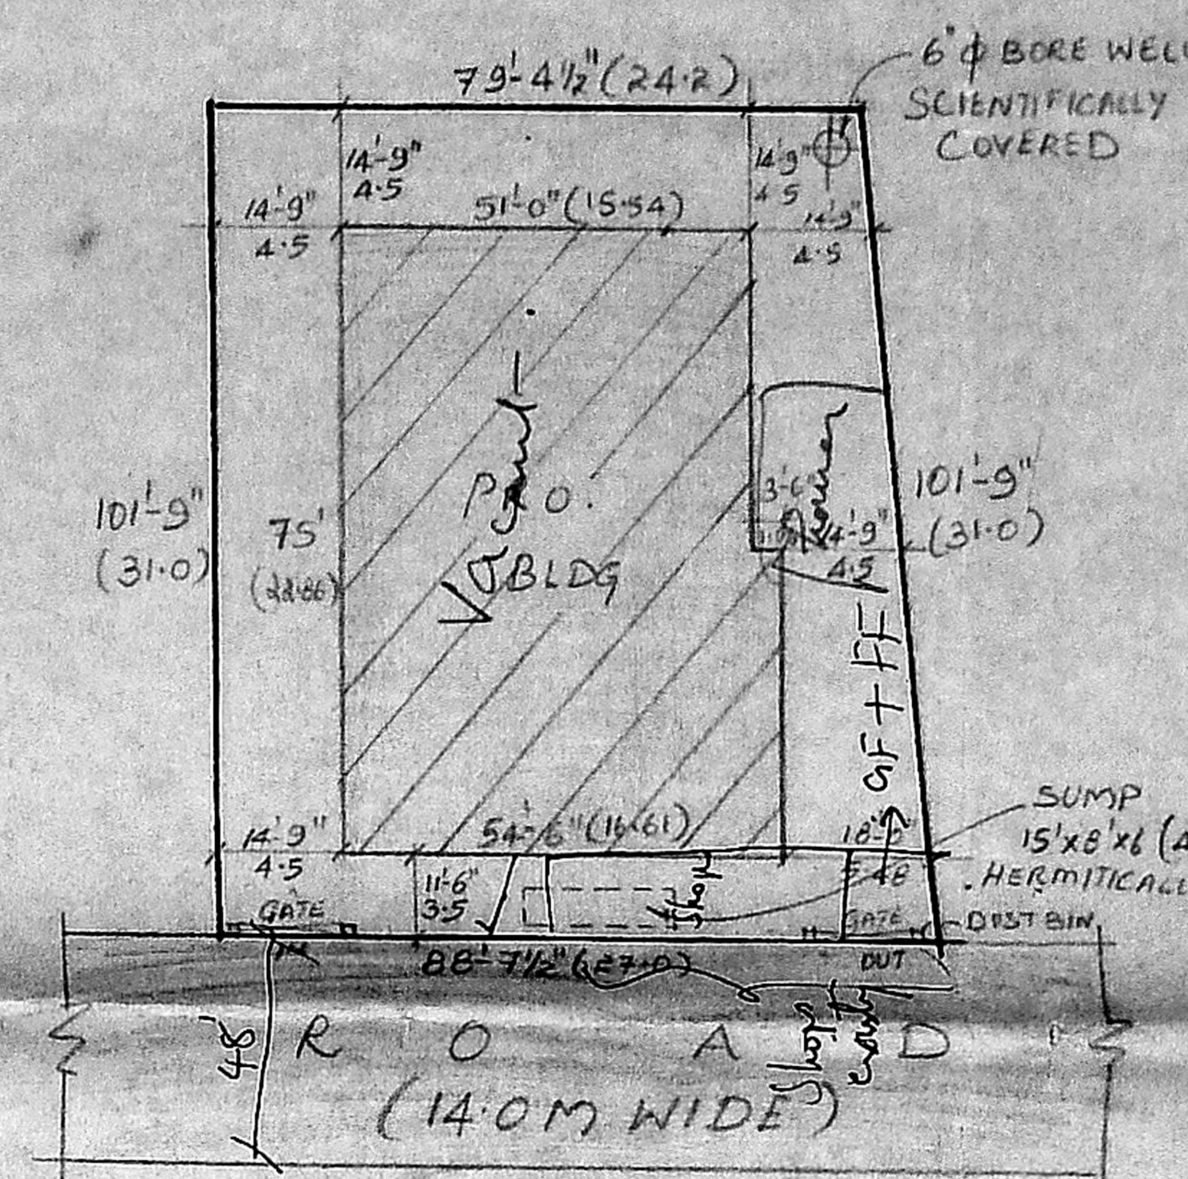 79'-4½"(24.2)
6"ϕ BORE WELL
SCIENTIFICALLY
COVERED
14'-9"
4.5
14'-9"
4.5
14'-9"
4.5
51'-0"(15.54)
14'-9"
4.5
101'-9"
(31.0)
75'
(22.86)
P.R.O.
BLDG
3'-6"
14'-9"
4.5
101'-9"
(31.0)
GF+FF
14'-9"
4.5
54'-6"(16.61)
18'-0"
5.48
SUMP
15'x8'x6'
HERMITICALL
11'-6"
3.5
Shop
GATE
IN
GATE
OUT
DUSTBIN
88'-7½"(27.0)
48'
R O A D
Shops
(14.0M WIDE)